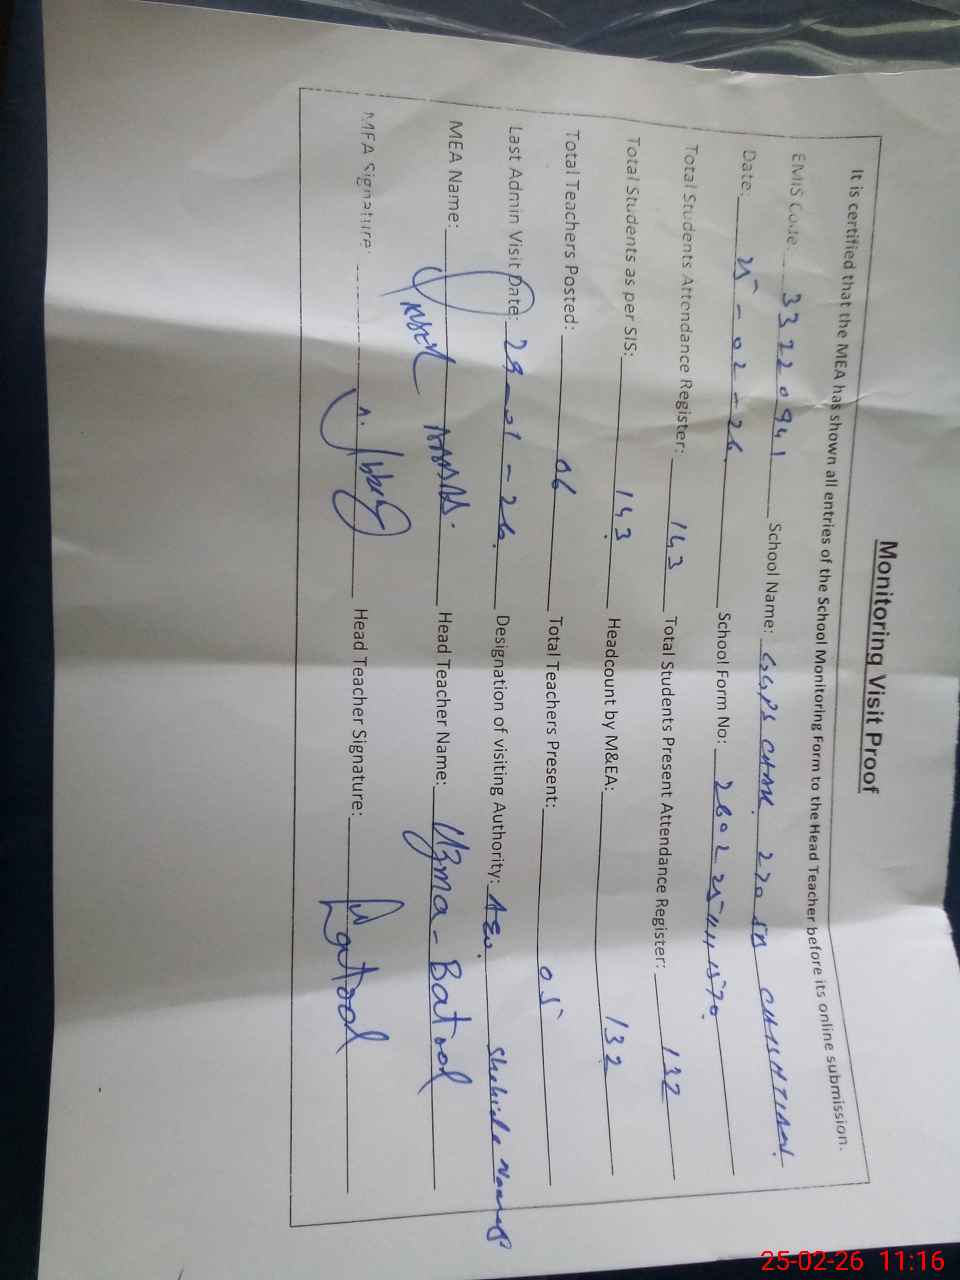 Monitoring Visit Proof
It is certified that the MEA has shown all entries of the School Monitoring Form to the Head Teacher before its online submission.
EMIS Code: 33220941 School Name: GGPS CHAK 270 CHISHTIAN.
Date: 25-02-26 School Form No:
Total Students Attendance Register: 143 Total Students Present Attendance Register: 132
Total Students as per SIS: 143 Headcount by M&EA: 132
Total Teachers Posted: 06 Total Teachers Present: 05
Last Admin Visit Date: 29-01-26. Designation of visiting Authority: AEO.
MEA Name: Head Teacher Name: Uzma-Batool
MEA Signature: Head Teacher Signature: Batool
25-02-26 11:16